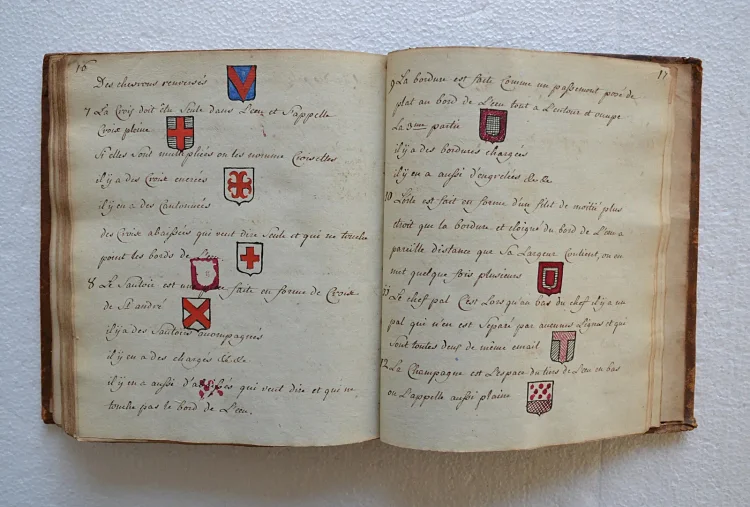 16
Des chevrons renversés
7 La Croix doit être Seule dans L'ecu et S'appelle
Croix pleine
Si elles Sont multipliées on les nomme Croisettes
il y a des Croix encrées
il y en a des Cantonnées
des Croix abaissées qui veut dire Seule et qui ne touche
point les bords de L'ecu
8 Le Sautoir est une faite en forme de Croix
de St andré
il y a des Sautoirs accompagnés
il y en a des chargés &c &c
il y en a aussi d' qui veut dire et qui ne
touche pas le bord de L'ecu.
17
9 La bordure est faite comme un passement posé de
plat au bord de L'ecu tout a L'entour et occupe
La 3eme partie
il y a des bordures chargées
il y en a aussi d'engrelées &c &c
10 L'orle est fait en forme d'un filet de moitié plus
étroit que la bordure et éloigné du bord de L'ecu a
pareille distance que Sa Largeur Contient, on en
met quelque fois plusieurs
11 Le chef pal C'est Lorsqu'au bas du chef il y a un
pal qui n'en est Separé par aucunes Lignes et qui
Sont toutes deux de même email
12 La Champagne est L'espace du tiers de L'ecu en bas
on L'appelle aussi plaine